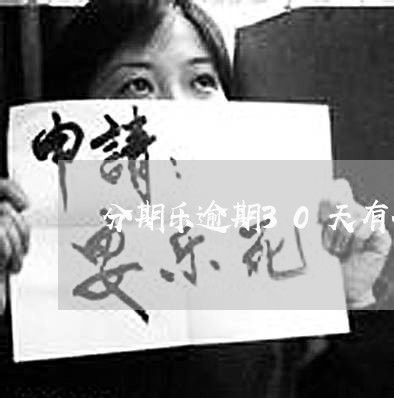 申請：
分期乐逾期30天有
安乐死